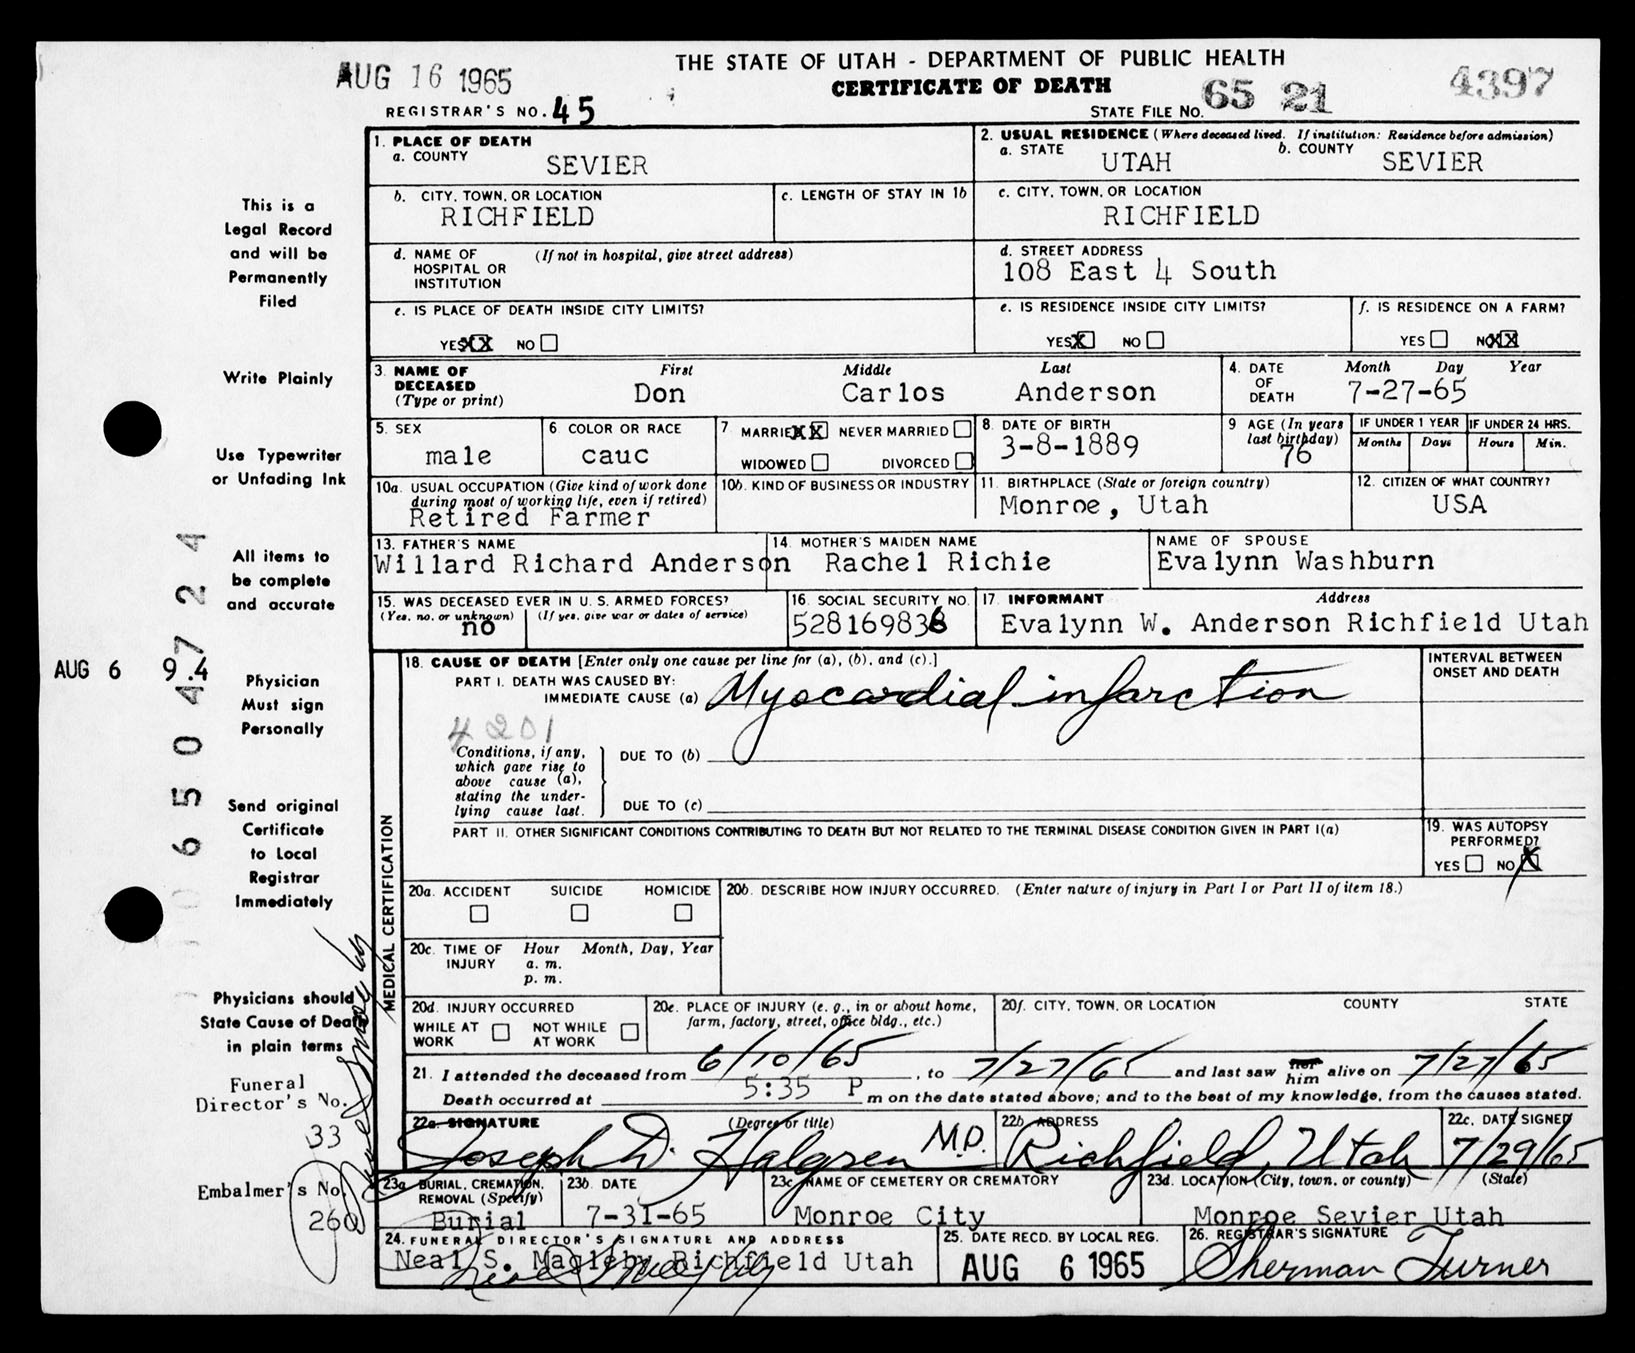 THE STATE OF UTAH - DEPARTMENT OF PUBLIC HEALTH
AUG 16 1965
CERTIFICATE OF DEATH
4397
REGISTRAR'S NO. 45
STATE FILE NO. 65 21
1. PLACE OF DEATH
a. COUNTY SEVIER
2. USUAL RESIDENCE (Where deceased lived. If institution: Residence before admission)
a. STATE UTAH b. COUNTY SEVIER
b. CITY, TOWN, OR LOCATION RICHFIELD
c. LENGTH OF STAY IN 1b
c. CITY, TOWN, OR LOCATION RICHFIELD
d. NAME OF HOSPITAL OR INSTITUTION (If not in hospital, give street address)
d. STREET ADDRESS 108 East 4 South
e. IS PLACE OF DEATH INSIDE CITY LIMITS?
YES XX NO
e. IS RESIDENCE INSIDE CITY LIMITS?
YES X NO
f. IS RESIDENCE ON A FARM?
YES NO XX
3. NAME OF DECEASED (Type or print)
First Middle Last
Don Carlos Anderson
4. DATE OF DEATH Month Day Year
7-27-65
5. SEX male
6 COLOR OR RACE cauc
7 MARRIED XX NEVER MARRIED
WIDOWED DIVORCED
8. DATE OF BIRTH 3-8-1889
9 AGE (In years last birthday) 76
IF UNDER 1 YEAR Months Days
IF UNDER 24 HRS. Hours Min.
10a. USUAL OCCUPATION (Give kind of work done during most of working life, even if retired)
Retired Farmer
10b. KIND OF BUSINESS OR INDUSTRY
11. BIRTHPLACE (State or foreign country)
Monroe, Utah
12. CITIZEN OF WHAT COUNTRY?
USA
13. FATHER'S NAME
Willard Richard Anderson
14. MOTHER'S MAIDEN NAME
Rachel Richie
NAME OF SPOUSE
Evalynn Washburn
15. WAS DECEASED EVER IN U. S. ARMED FORCES?
(Yes, no, or unknown) (If yes, give war or dates of service)
no
16. SOCIAL SECURITY NO.
528169836
17. INFORMANT Address
Evalynn W. Anderson Richfield Utah
MEDICAL CERTIFICATION
18. CAUSE OF DEATH [Enter only one cause per line for (a), (b), and (c).]
PART I. DEATH WAS CAUSED BY:
IMMEDIATE CAUSE (a) Myocardial infarction
INTERVAL BETWEEN ONSET AND DEATH
4201
Conditions, if any, which gave rise to above cause (a), stating the underlying cause last.
DUE TO (b)
DUE TO (c)
PART II. OTHER SIGNIFICANT CONDITIONS CONTRIBUTING TO DEATH BUT NOT RELATED TO THE TERMINAL DISEASE CONDITION GIVEN IN PART I(a)
19. WAS AUTOPSY PERFORMED?
YES NO X
20a. ACCIDENT SUICIDE HOMICIDE
20b. DESCRIBE HOW INJURY OCCURRED. (Enter nature of injury in Part I or Part II of item 18.)
20c. TIME OF INJURY Hour Month, Day, Year
a. m.
p. m.
20d. INJURY OCCURRED
WHILE AT WORK NOT WHILE AT WORK
20e. PLACE OF INJURY (e. g., in or about home, farm, factory, street, office bldg., etc.)
20f. CITY, TOWN, OR LOCATION COUNTY STATE
21. I attended the deceased from 6/10/65, to 7/27/65 and last saw her him alive on 7/27/65
Death occurred at 5:35 P m on the date stated above; and to the best of my knowledge, from the causes stated.
22a. SIGNATURE (Degree or title)
Joseph D. Halgren M.D.
22b. ADDRESS
Richfield, Utah
22c. DATE SIGNED
7/29/65
23a BURIAL, CREMATION, REMOVAL (Specify)
Burial
23b. DATE
7-31-65
23c NAME OF CEMETERY OR CREMATORY
Monroe City
23d. LOCATION (City, town, or county) (State)
Monroe Sevier Utah
24. FUNERAL DIRECTOR'S SIGNATURE AND ADDRESS
Neal S. Magleby Richfield Utah
25. DATE RECD. BY LOCAL REG.
AUG 6 1965
26. REGISTRAR'S SIGNATURE
Sherman Turner
This is a
Legal Record
and will be
Permanently
Filed
Write Plainly
Use Typewriter
or Unfading Ink
All items to
be complete
and accurate
AUG 6 9.4
Physician
Must sign
Personally
Send original
Certificate
to Local
Registrar
Immediately
Physicians should
State Cause of Death
in plain terms
Funeral
Director's No.
33
Embalmer's No.
260